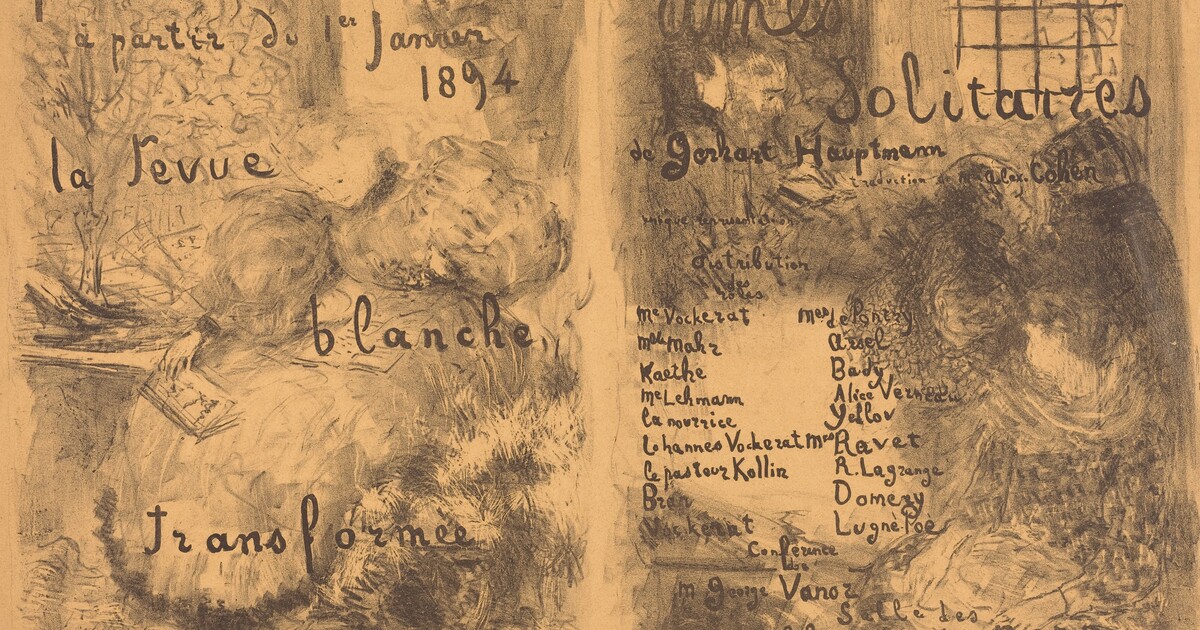 à partir du 1er Janvier
1894
la revue
blanche
transformée
âmes
Solitaires
de Gerhart Hauptmann
traduction de Mr Alex. Cohen
unique représentation
distribution
des
rôles
Me Vockerat Mes de Pontzy
Melle Mahr Arsel
Kaethe Bady
Me Lehmann Alice Verneau
la nourrice Yellov
Johannes Vockerat Mrs Ravet
le pasteur Kollin R. Lagrange
Bren Domeny
Vockerat Lugné Poë
Conférence
de
M George Vanor
Salle des